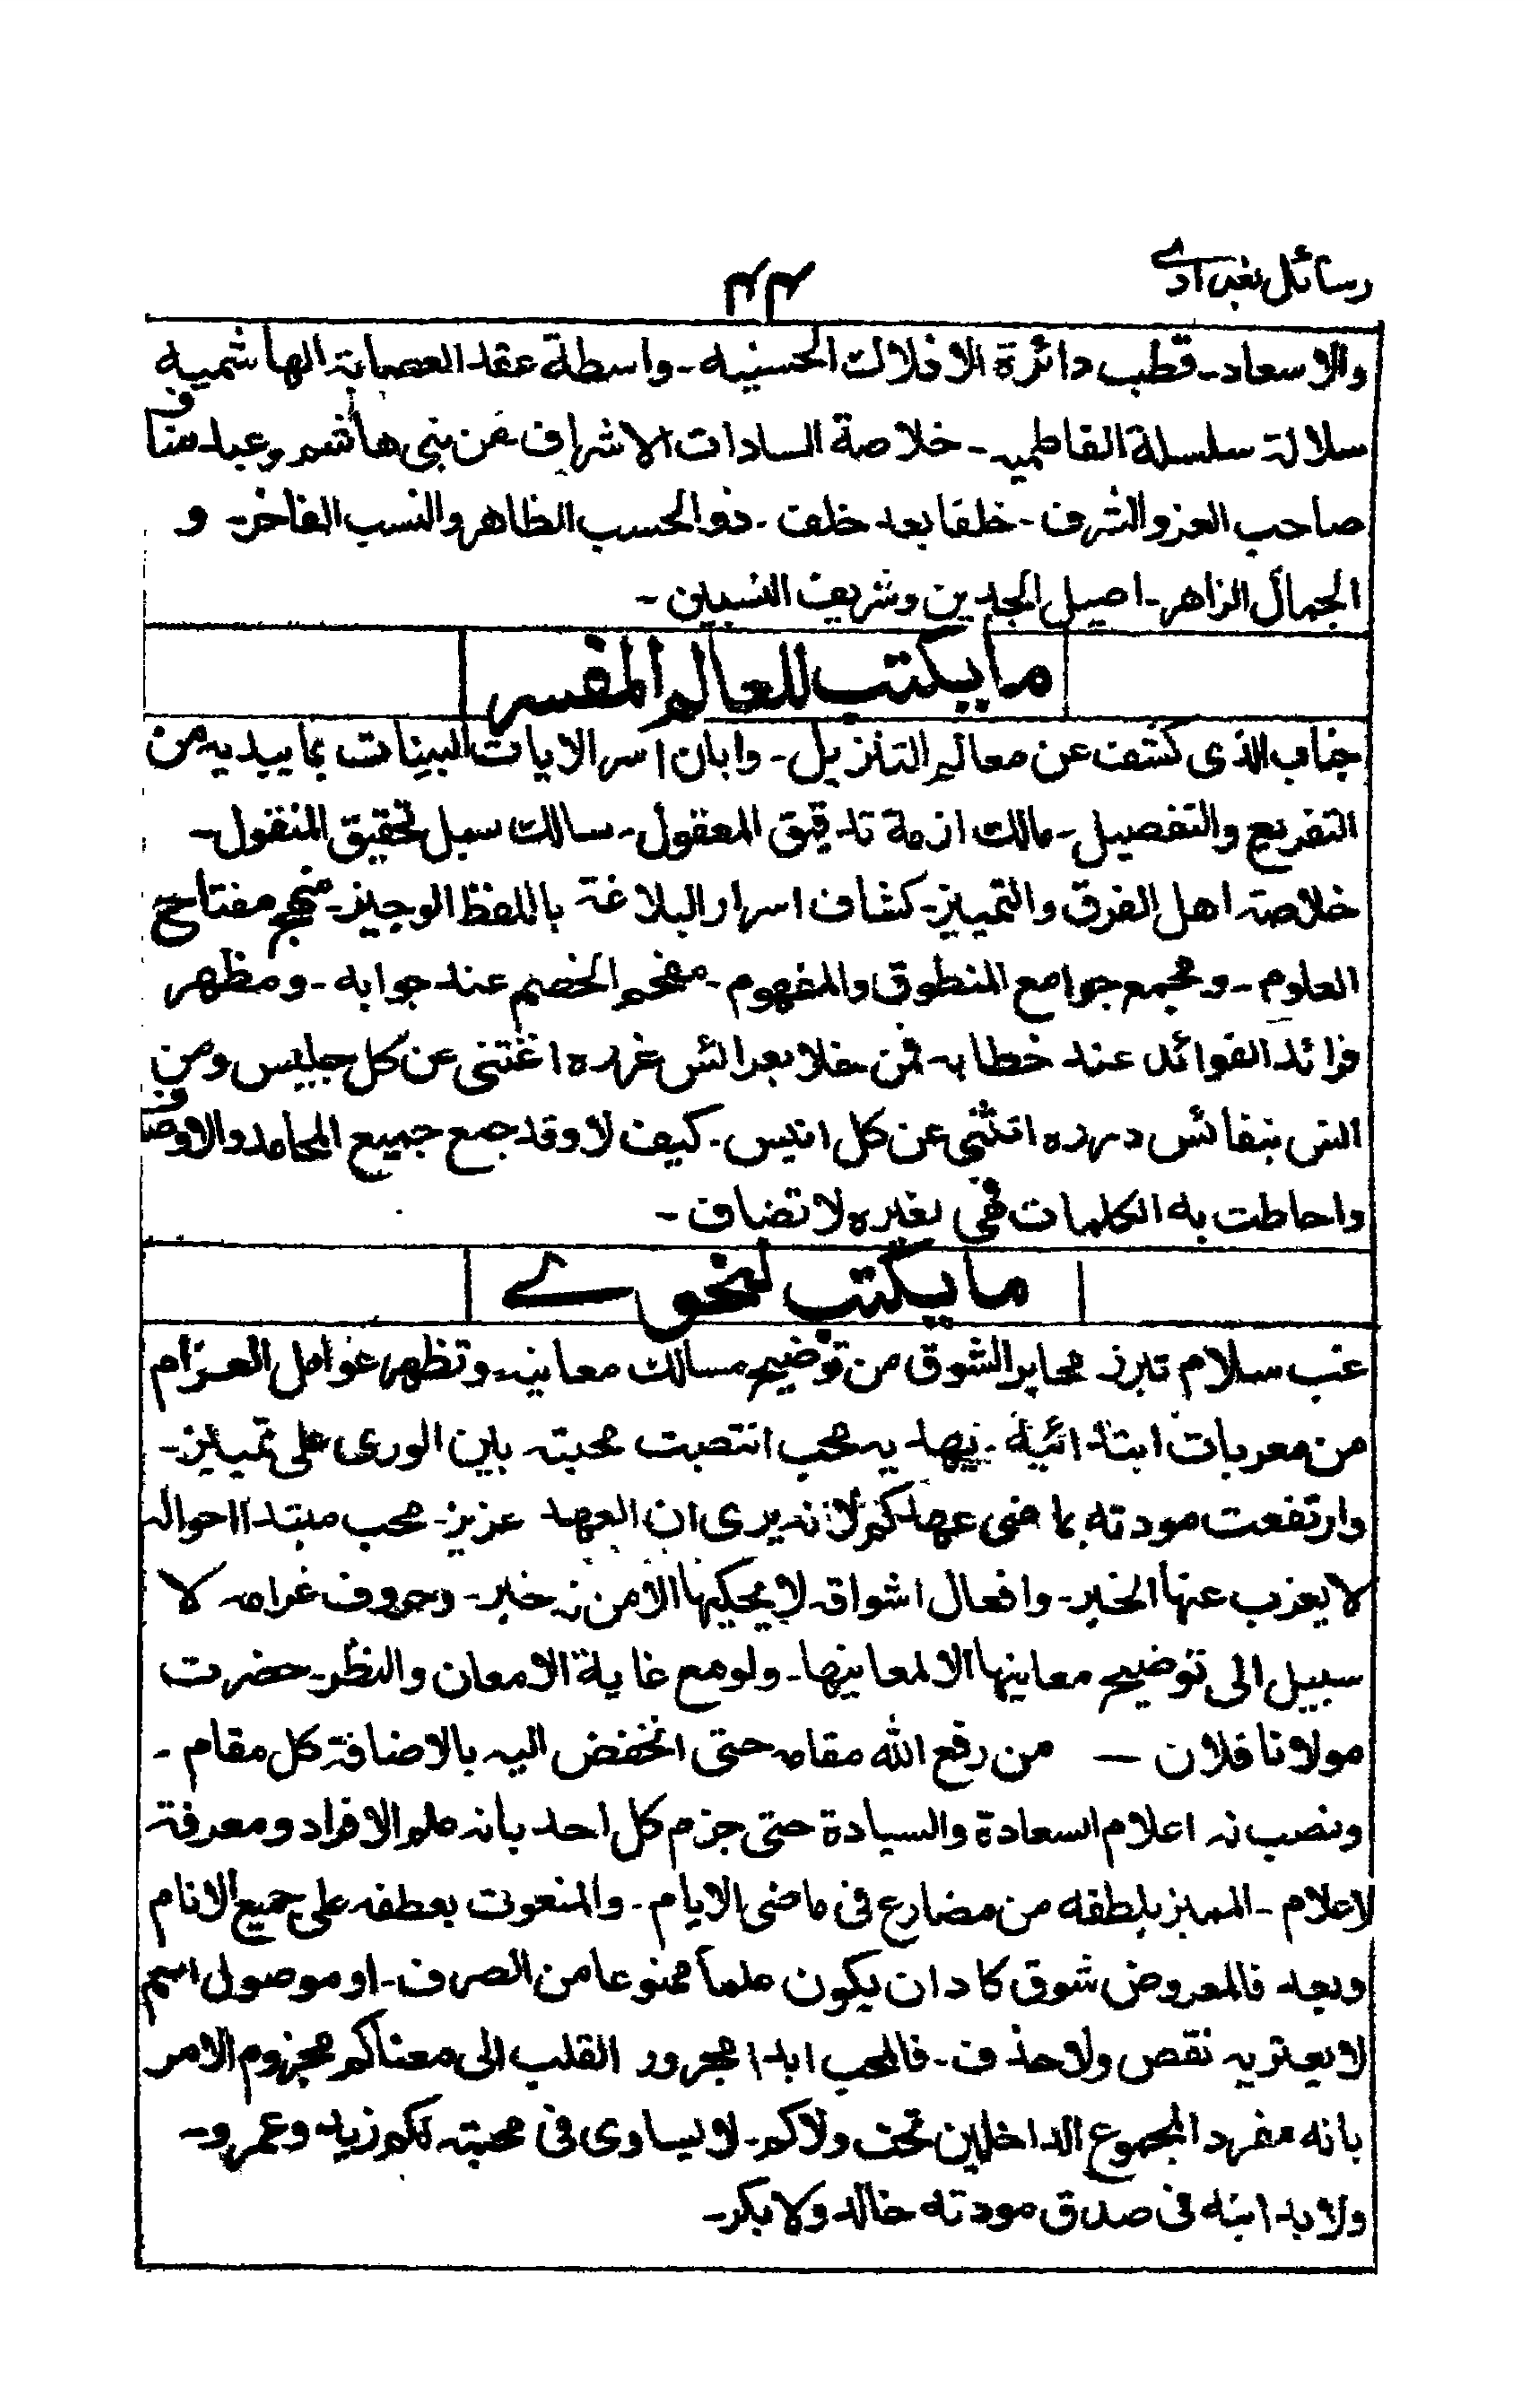 رسائل بغدادی
۴۴
والاسعاد۔ قطب دائرة الافلاک الحسنیہ۔ واسطة عقد العصابۃ الهاشمیہ
سلالۃ سلسلة الفاطمیہ۔ خلاصة السادات الاشراف من بنی هاشم وعبد مناف
صاحب العز والشرف۔ خلفا بعد خلف۔ ذو الحسب الظاهر والنسب الفاخر۔ و
الجمال الزاهر۔ اصیل الجدین وشریف النسبین۔
ما یکتب للعالم المفسر
جناب الذی کشف عن معالم التنزیل۔ وابان اسر الایات البینات بما یبدیہ من
التفریع والتفصیل۔ مالک ازمة تدقیق المعقول۔ سالک سبل تحقیق المنقول۔
خلاصۃ اهل الفرق والتمییز۔ کشاف اسرار البلاغۃ باللفظ الوجیز۔ منهج مفتاح
العلوم۔ ومجمع جوامع المنطوق والمفهوم۔ مفحم الخصم عند جوابه۔ ومظهر
فرائد الفوائد عند خطابہ۔ فمن خلا بعرائس غررہ اغتنی عن کل جلیس ومن
انس بنفائس دررہ انثنی عن کل انیس۔ کیف لا وقد جمع جمیع المحامد والاوصاف
واحاطت به الکلمات فهی لغیرہ لا تضاف۔
ما یکتب لنحوے
غب سلام تبرز محابر الشوق من توضیح مسالک معانیہ۔ وتظهر عوامل الغرام
من معربات ابتدائیة۔ یهدیہ محب انتصبت محبتہ بین الوری علی تمییز۔
وارتفعت مودته بما ضی عهدکم لانہ یری ان العهد عزیز۔ محب مبتدا احوالہ
لا یعزب عنها الخبر۔ وافعال اشواقہ لا یحکیها الا من خبر۔ وحروف غرامہ لا
سبیل الی توضیح معانیها الا لمعانیها۔ ولو مع غایة الامعان والنظر۔ حضرت
مولانا فلان — من رفع الله مقامہ حتی انخفض الیہ بالاضافۃ کل مقام۔
ونصب لہ اعلام السعادة والسیادة حتی جزم کل احد بانہ علم الافراد ومعرفۃ
لاعلام۔ الممیز بلطفه من مضارع فی ماضی الایام۔ والمنعوت بعطفہ علی جمیع الانام
وبعد فالمعروض شوق کاد ان یکون علما ممنوعا من الصرف۔ او موصول اسم
لا یعتریہ نقص ولا حذف۔ فالمحب ابدا مجرور القلب الی معناکم مجزوم الامر
بانه مفرد المجموع الداخلین تحت ولاکم۔ لا یساوی فی محبتہ لکم زید وعمرو۔
ولا یدانیه فی صدق مودته خالد ولا بکر۔